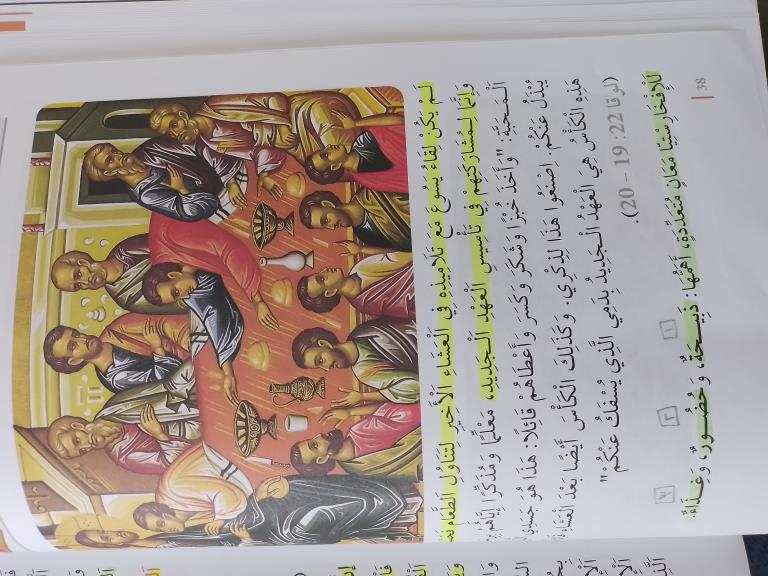 لَمْ يَكُنْ لِقَاءُ يَسُوعَ مَعَ تَلَامِيذِهِ فِي الْعَشَاءِ الْأَخِيرِ لِتَنَاوُلِ الطَّعَامِ
وَإِنَّمَا لِمُشَارَكَتِهِمْ فِي تَأْسِيسِ الْعَهْدِ الْجَدِيدِ، مُعَلِّمًا وَمُذَكِّرًا إِيَّاهُمْ
الْمَحَبَّةِ: "وَأَخَذَ خُبْزًا وَشَكَرَ وَكَسَرَ وَأَعْطَاهُمْ قَائِلًا: هَذَا هُوَ جَسَدِي
يُبْذَلُ عَنْكُمْ. اِصْنَعُوا هَذَا لِذِكْرِي. وَكَذَلِكَ الْكَأْسَ أَيْضًا بَعْدَ الْعَشَاءِ
هَذِهِ الْكَأْسُ هِيَ الْعَهْدُ الْجَدِيدُ بِدَمِي الَّذِي يُسْفَكُ عَنْكُمْ"
(لوقا 22: 19 - 20).
١ ٢ ٣
لِلْإِفْخَارِسْتِيَّا مَعَانٍ مُتَعَدِّدَةٍ، أَهَمُّهَا: ذَبِيحَةٌ، وَحُضُورٌ، وَغِذَاءٌ.
38